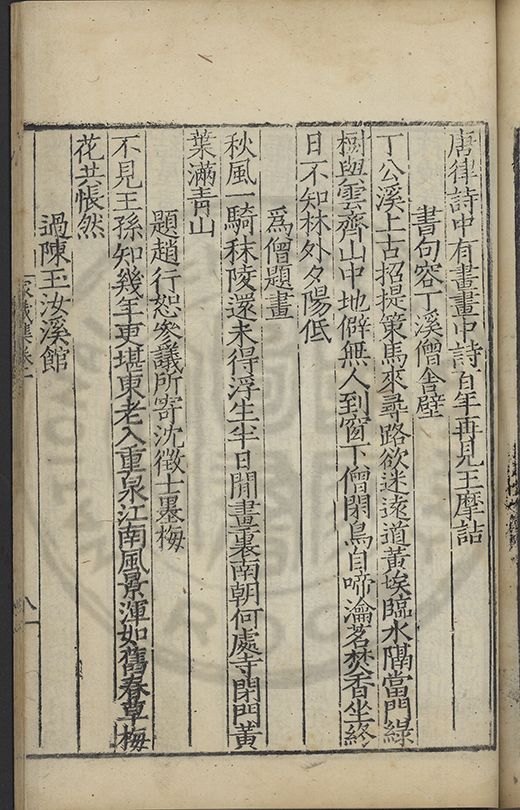 唐律詩中有畫畫中詩百年再見王摩詰
書句容丁溪僧舍壁
丁公溪上古招提策馬來尋路欲迷遠道黃埃臨水隔當門綠
樹與雲齊山中地僻無人到窗下僧閑鳥自啼瀹茗焚香坐終
日不知林外夕陽低
為僧題畫
秋風一騎秣陵還未得浮生半日閒畫裏南朝何處寺閉門黃
葉滿青山
題趙行恕參議所寄沈徵士墨梅
不見王孫知幾年更堪東老入重泉江南風景渾如舊春草梅
花共悵然
過陳玉汝溪館
家藏集卷一